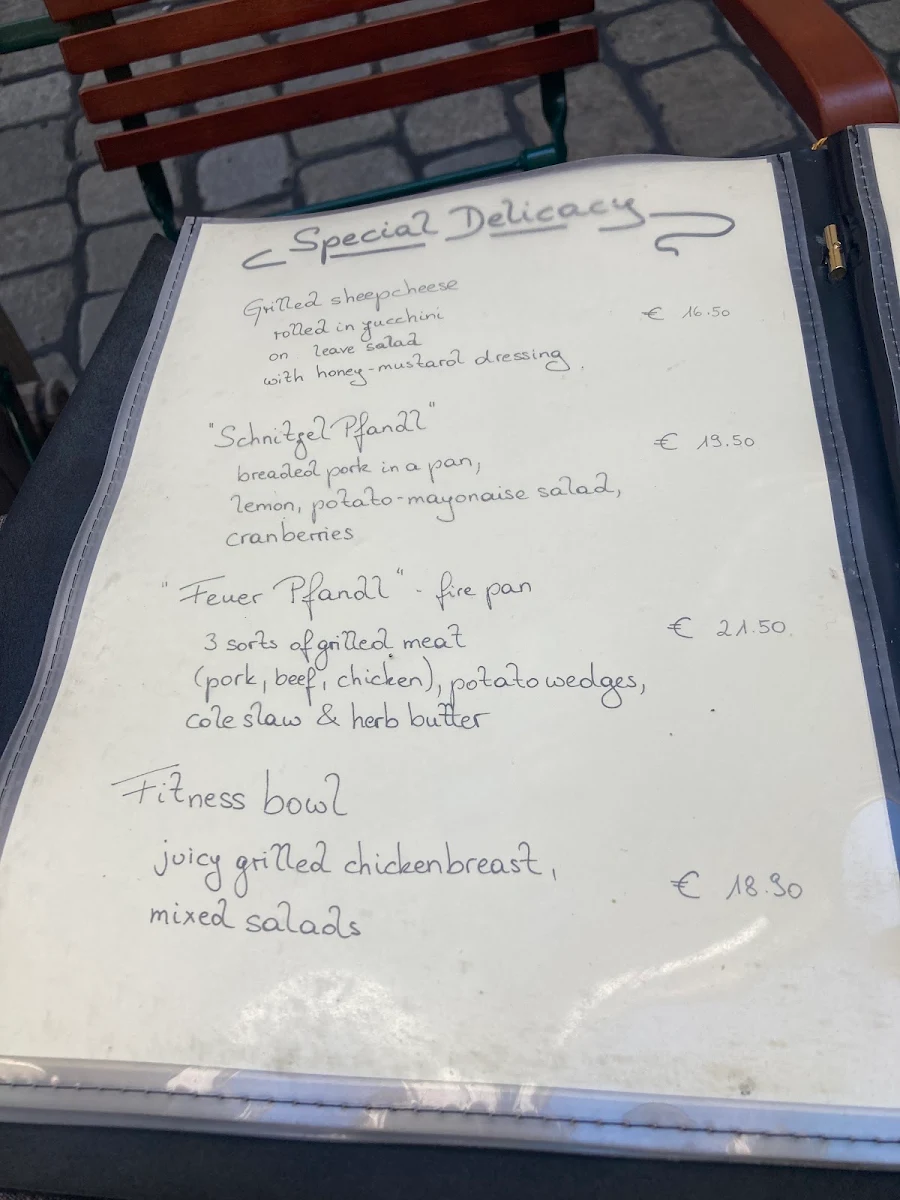 Special Delicacy
Grilled sheepcheese
rolled in zucchini
on leave salad
with honey-mustard dressing.
€ 16.50
"Schnitzel Pfandl"
breaded pork in a pan,
lemon, potato-mayonaise salad,
cranberries
€ 19.50
"Feuer Pfandl" - fire pan
3 sorts of grilled meat
(pork, beef, chicken), potato wedges,
cole slaw & herb butter
€ 21.50
Fitness bowl
juicy grilled chickenbreast,
mixed salads
€ 18.90